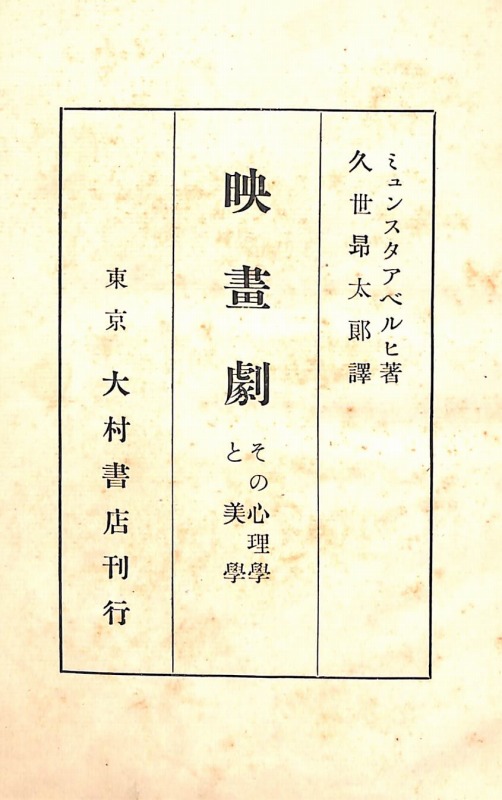 ミュンスタアベルヒ著
久世昻太郞譯
映畫劇
その心理學
と美學
東京 大村書店刊行